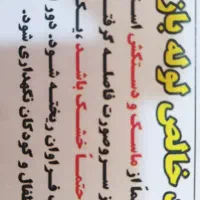 خالص لوله باز
از ماسک و دستکش
سر و صورت فاصله
حتماً خشک باشد ،
فراوان ریخته شود. دور
و کودکان نگهداری شود.